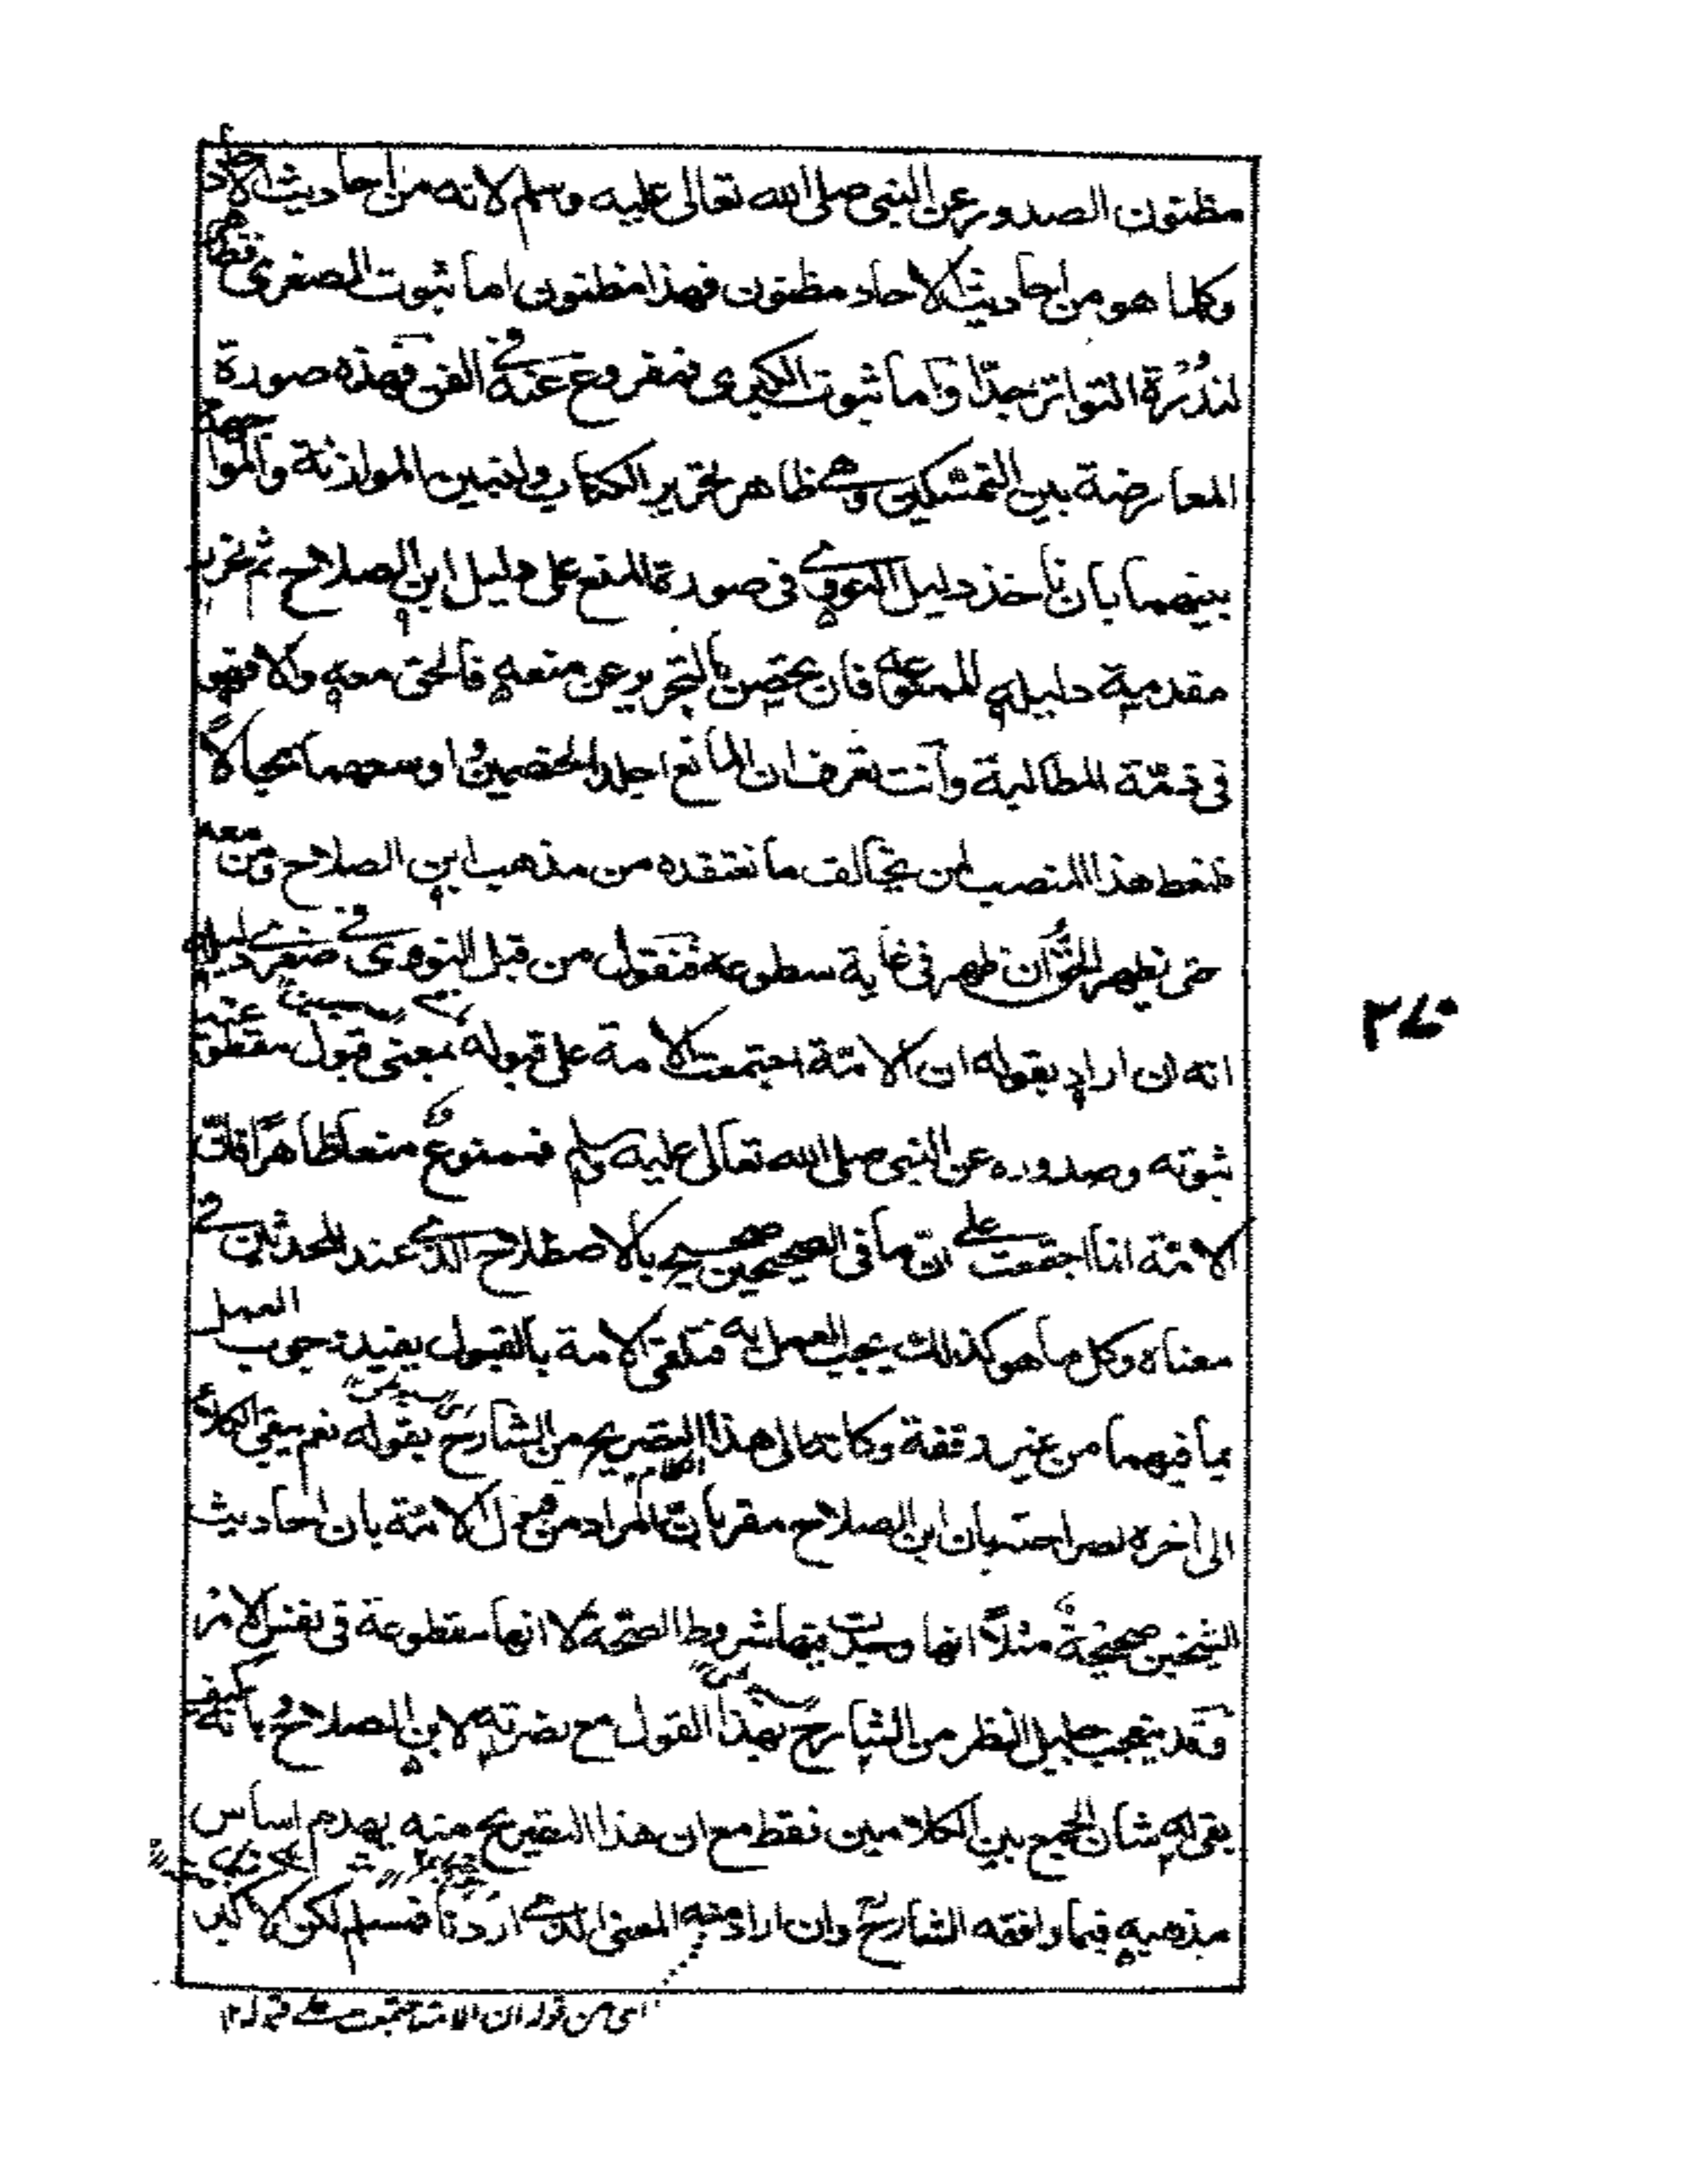 مظنون الصدور عن النبي صلى الله تعالى عليه وسلم لانه من احاديث الاحاد
وكلما هو من احاديث الاحاد مظنون فهذا مظنون اما ثبوت الصغرى فظاهر
لندُرة التواتر جدّا وأما ثبوت الكبرى فمفروغ عنه في الفن فهذه صورة
المعارضة بين التمسكين وهي ظاهر تحرير الكتاب ولنبين الموازنة والمواجهة
بينهما بان نأخذ دليل النووي في صورة المنع على دليل ابن الصلاح ثم نحرر
مقدمة دليله الممنوعة فان تحصن بالتحرير عن منعه فالحق معه والا فهو
في ذمّة المطالبة وأنت تعرف ان المانع اجلد الخصمين اوسعهما مجالاً
فنعط هذا المنصب لمن يخالف ما نعتقده من مذهب ابن الصلاح ومن معه
حتى يظهر الحقُّ ان ظهر في غاية سطوعه فنقول من قبل النووي في صغرى دليله
انه ان اراد بقوله ان الامّة اجتمعت الامة على قبوله بمعنى قبول مقطوع عنه
ثبوته وصدوره عن النبي صلى الله تعالى عليه وسلم فممنوعٌ منعاً ظاهرًا فانّ
الامّة انما اجتمعت على انّ ما في الصحيحين صحيح بالاصطلاح الذي عند المحدثين في
معناه وكل ما هو كذلك يجب العمل به فتلقى الامة بالقبول يفيد وجوب العمل
بما فيهما من غير وقفة وكانما الى هذا التصريح من الشارح بقوله نعم يبقى الكلام
الى أخره لصراحته بان ابن الصلاح مقر بانّ المراد من قول الامّة بان احاديث
الشيخين صحيحةٌ مثلاً انها وجدت فيها شروط الصحّة لا انها مقطوعة في نفس الامر
وقد يتعجب جليل النظر من الشارح بهذا القول مع نصرته لابن الصلاح بانّه كيف
بقي له شان الجمع بين الكلامين فقط مع ان هذا التصريح منه يهدم اساس
مذهبه فيما وافقه الشارح وان اراد منه المعنى الذي اردنا فمسلم لكن لا
اى من قوله ان الامة اجتمعت على قبوله ١٢
٢٧٠